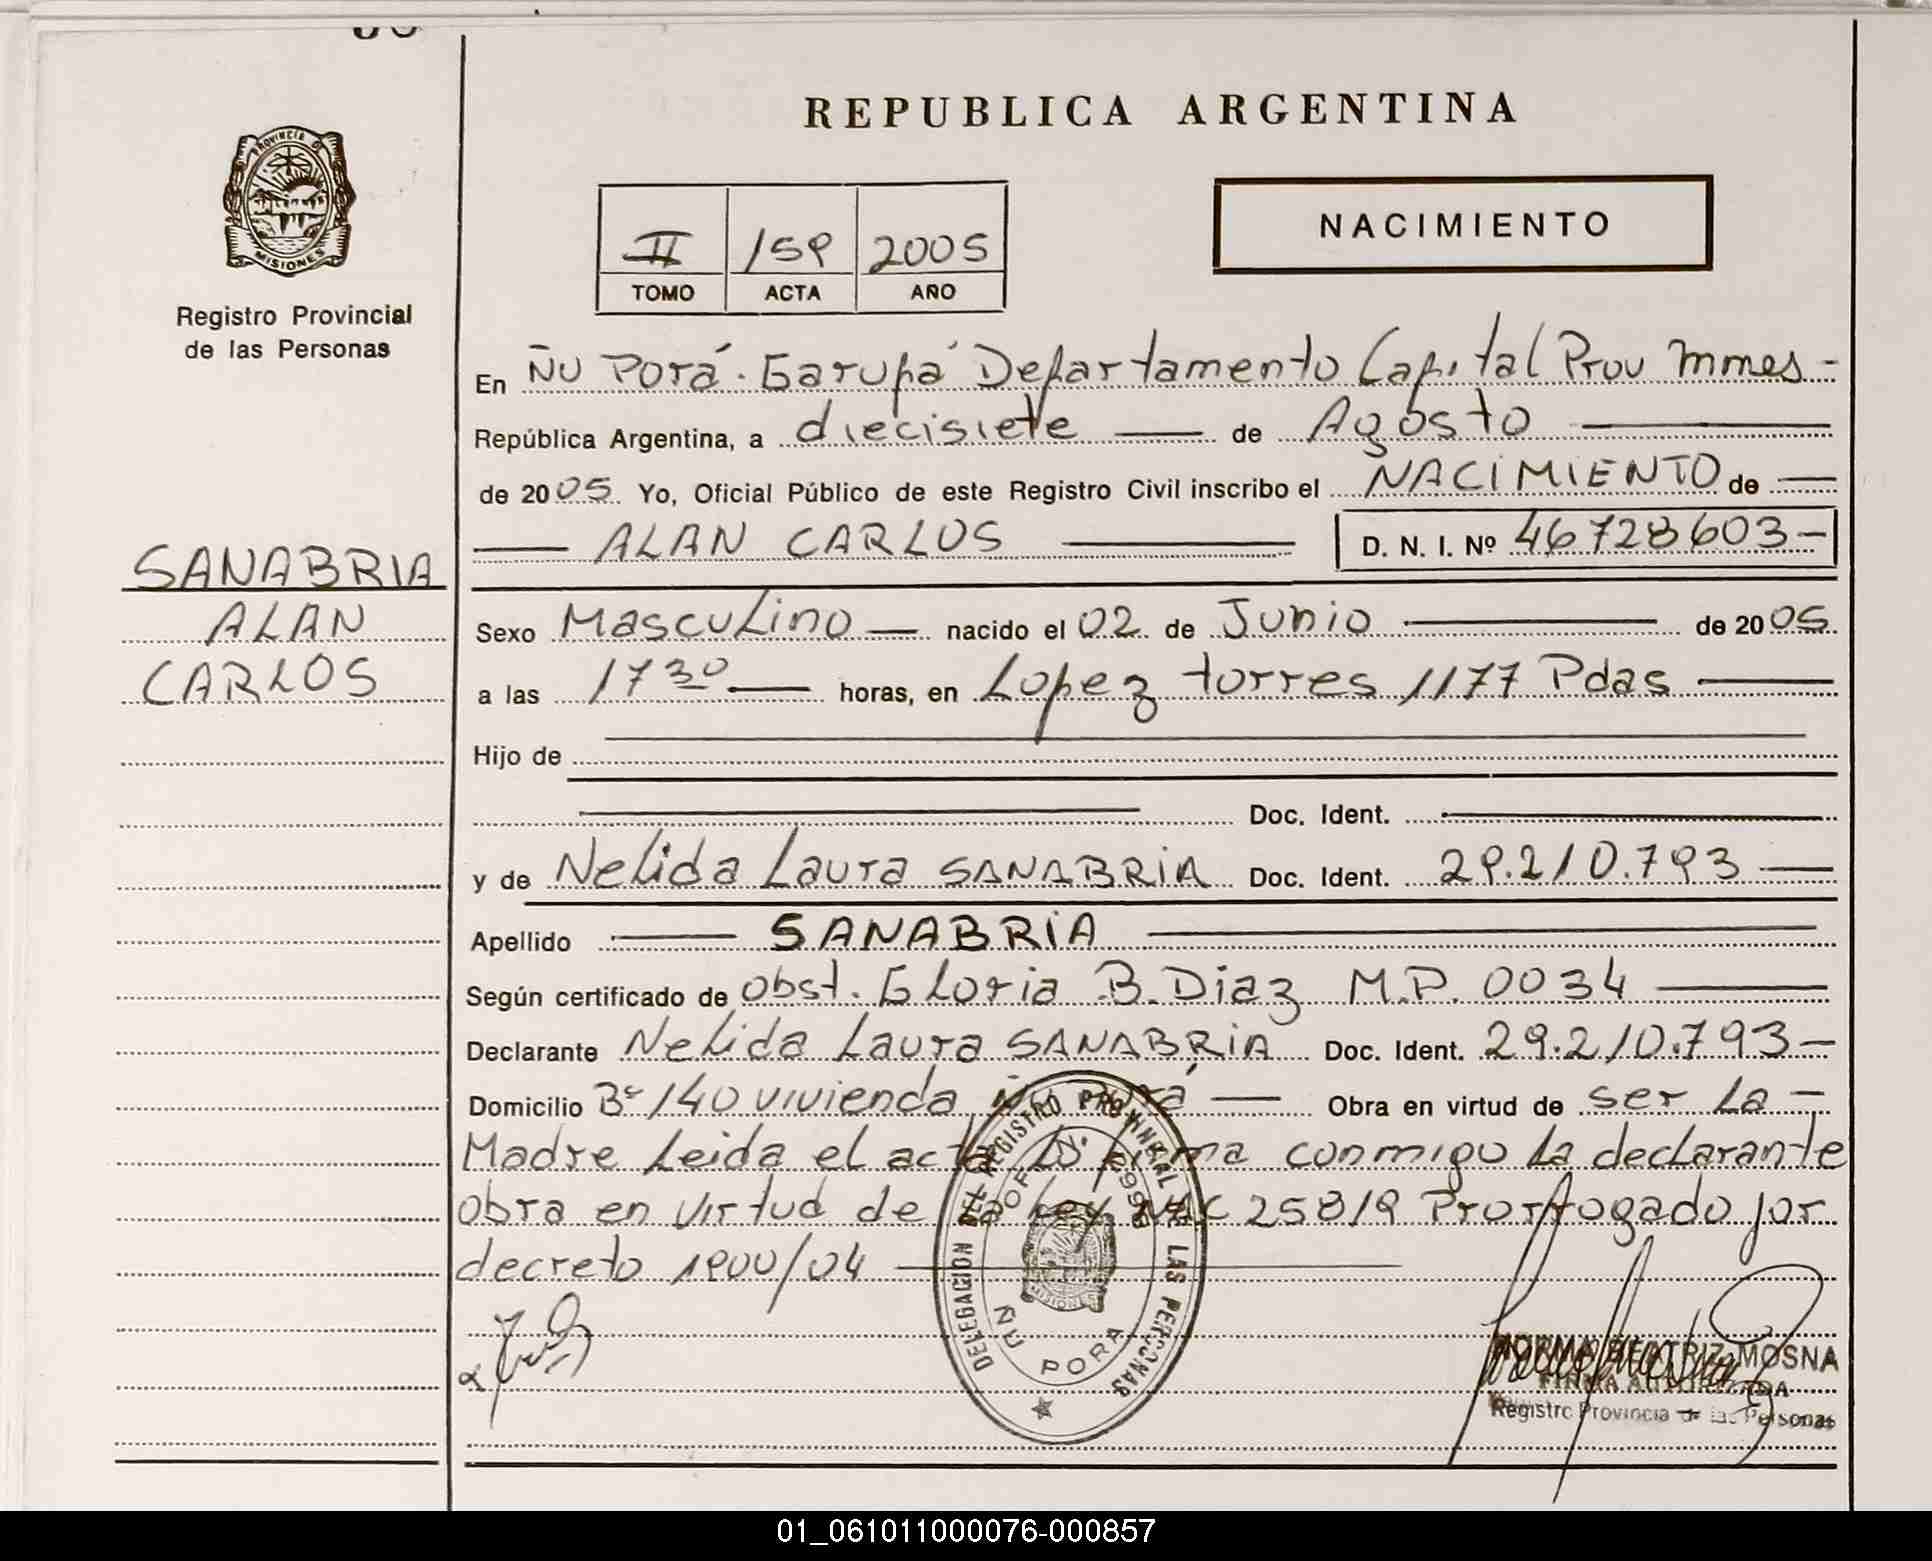 REPUBLICA ARGENTINA
PROVINCIA DE MISIONES
Registro Provincial
de las Personas
II 159 2005
TOMO ACTA AÑO
NACIMIENTO
En Ñu Porá - Garupá Departamento Capital Prov Mnes -
República Argentina, a diecisiete de Agosto
de 2005 Yo, Oficial Público de este Registro Civil inscribo el NACIMIENTO de
ALAN CARLOS D. N. I. Nº 46728603-
SANABRIA
ALAN
CARLOS
Sexo Masculino nacido el 02 de Junio de 2005
a las 17 30 horas, en Lopez torres 1177 Pdas
Hijo de
Doc. Ident.
y de Nelida Laura SANABRIA Doc. Ident. 29.210.793
Apellido SANABRIA
Según certificado de obst. Gloria B. Diaz M.P. 0034
Declarante Nelida Laura SANABRIA Doc. Ident. 29.210.793-
Domicilio Bº 140 vivienda Ñu Porá Obra en virtud de ser la -
Madre Leida el acta la firma conmigo la declarante
obra en virtud de la Ley Nac 25819 Prorrogado por
decreto 1900/04
DELEGACION DEL REGISTRO PROVINCIAL DE LAS PERSONAS
ÑU PORA
MISIONES
NORMA BEATRIZ MOSNA
FIRMA AUTORIZADA
Registro Provincial de las Personas
01_061011000076-000857